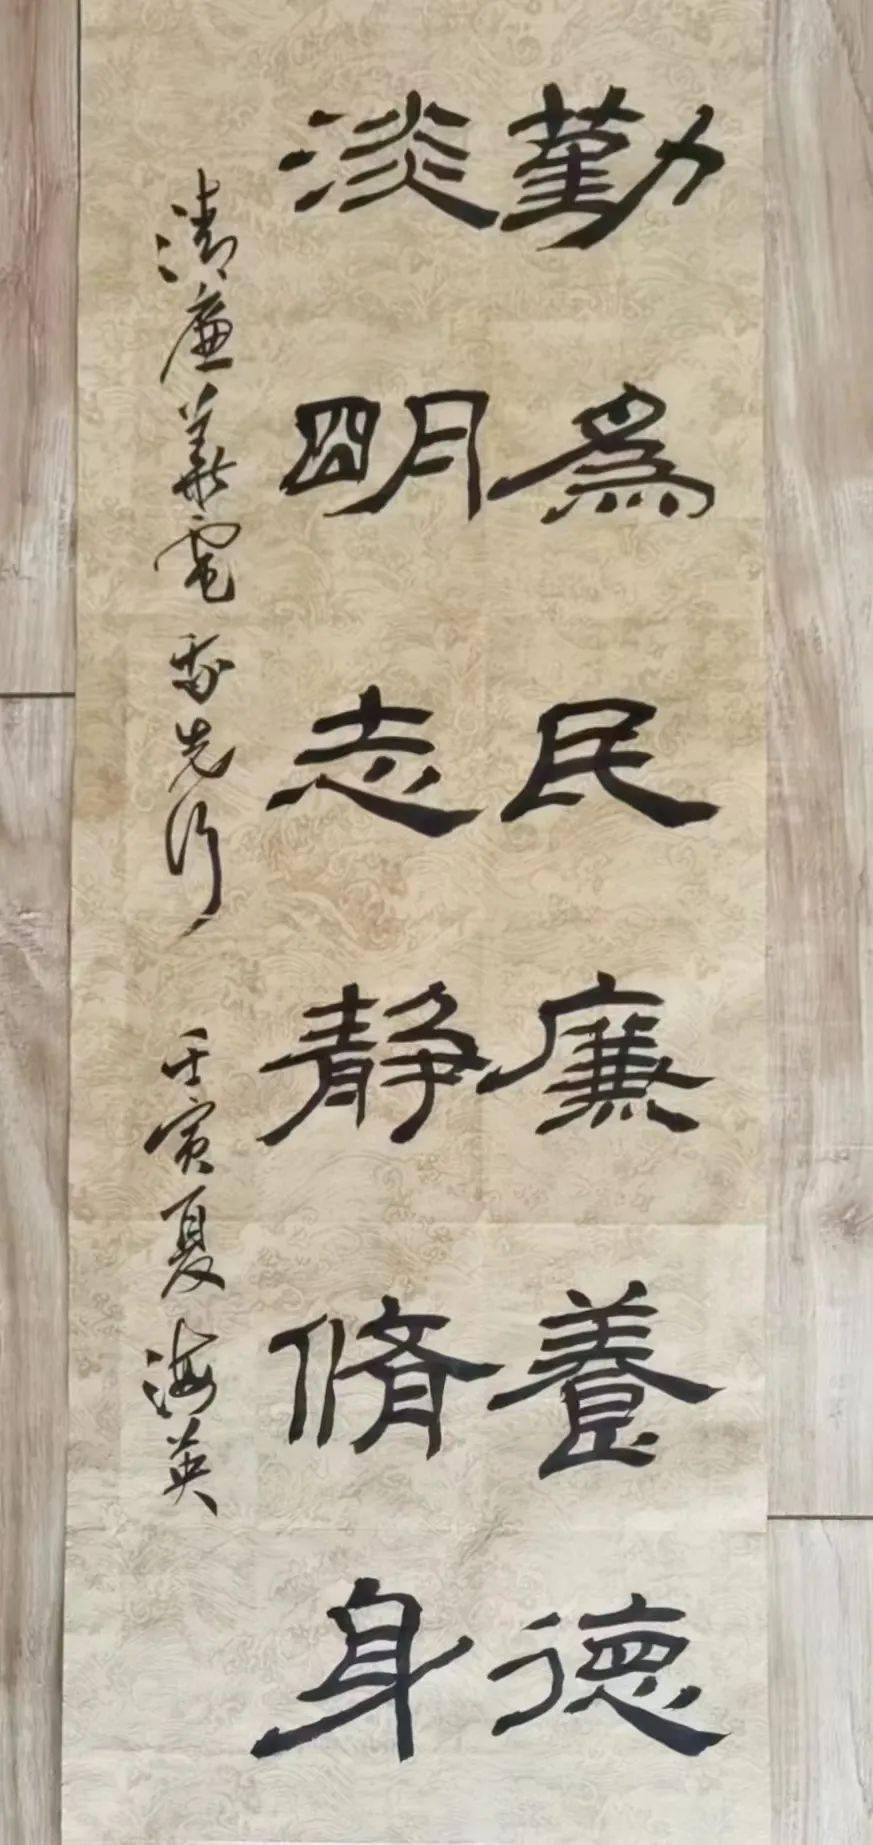 勤為民廉養德
淡明志静脩身
清廉華電 我先行 壬寅夏 海英